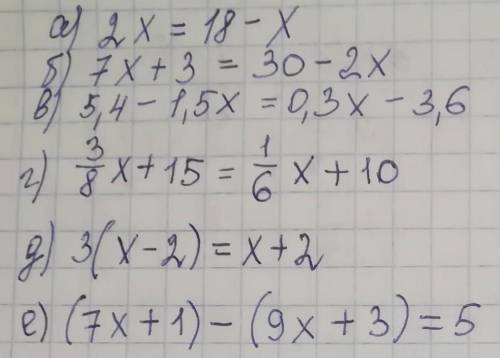 а) 2x = 18 - x
б) 7x + 3 = 30 - 2x
в) 5,4 - 1,5x = 0,3x - 3,6
г) 3/8 x + 15 = 1/6 x + 10
д) 3(x - 2) = x + 2
е) (7x + 1) - (9x + 3) = 5